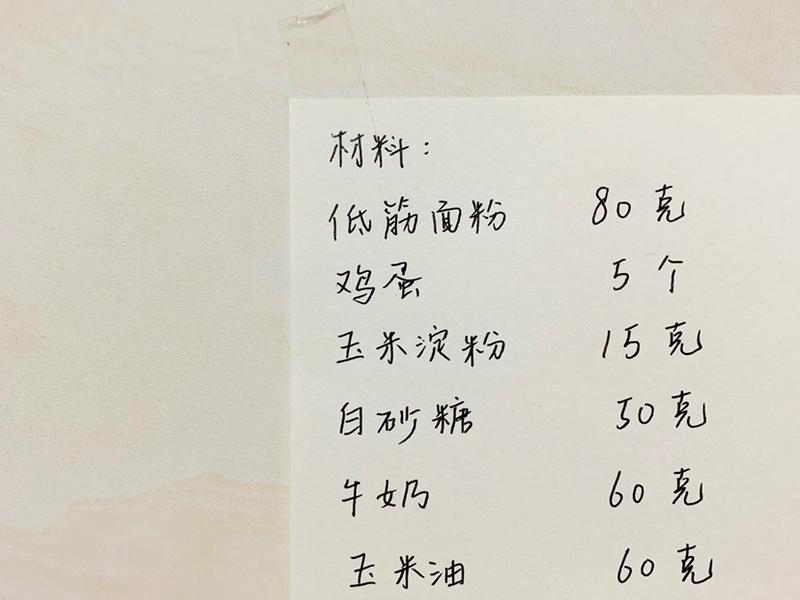 材料：
低筋面粉 80克
鸡蛋 5个
玉米淀粉 15克
白砂糖 50克
牛奶 60克
玉米油 60克